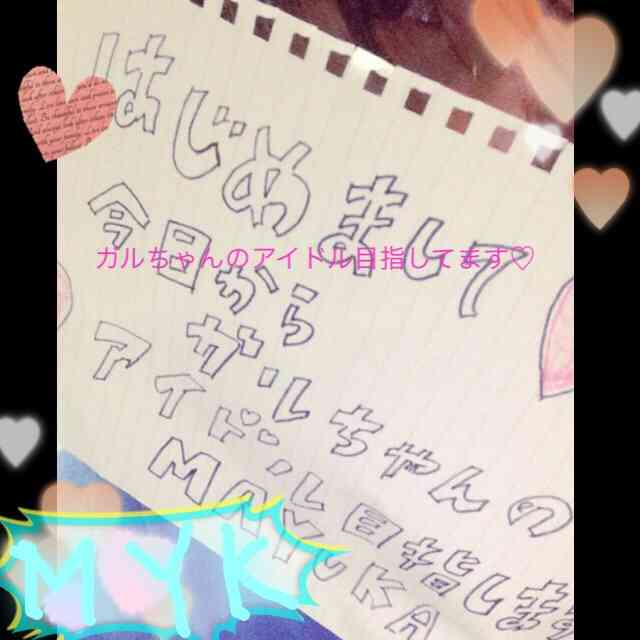 はじめまして
ガルちゃんのアイドル目指してます♡
今日から
ガルちゃんの
アイドル目指します
MAYUKA
MYK